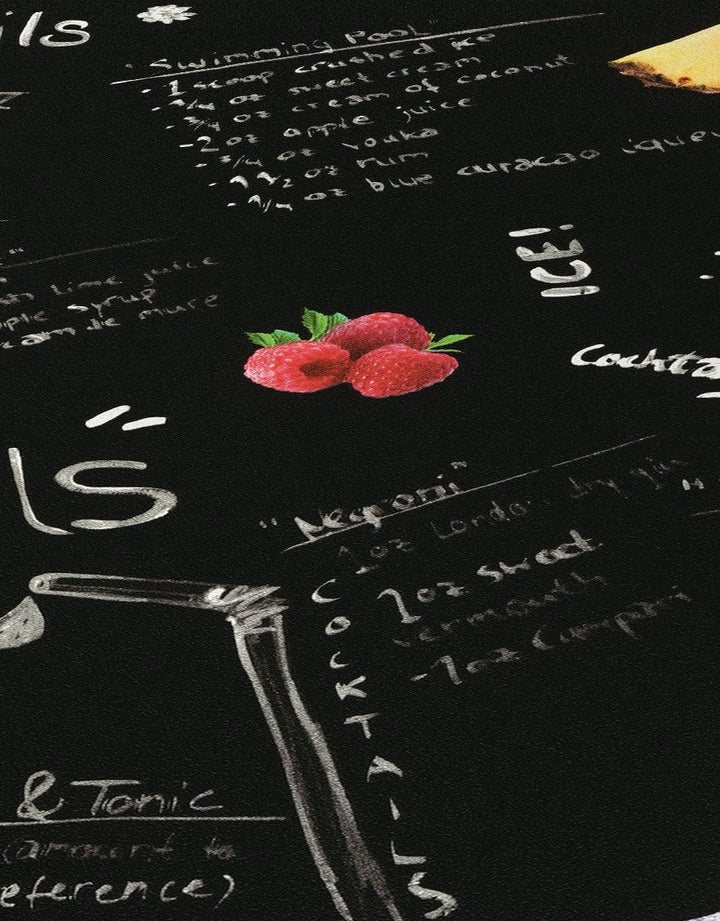 ils
"Swimming Pool"
- 1 scoop crushed ice
- 3/4 oz sweet cream
- 3/4 oz cream of coconut
- 2 oz apple juice
- 3/4 oz vodka
- 1 1/2 oz rum
- 1/4 oz blue curacao lique
lime juice
ple syrup
eam de mure
ICE!
Cockta
ls
"Negroni"
1oz London dry gin
- 1oz sweet
vermouth
- 1oz Campari
COCKTAILS
& Tonic
(amount to
eference)